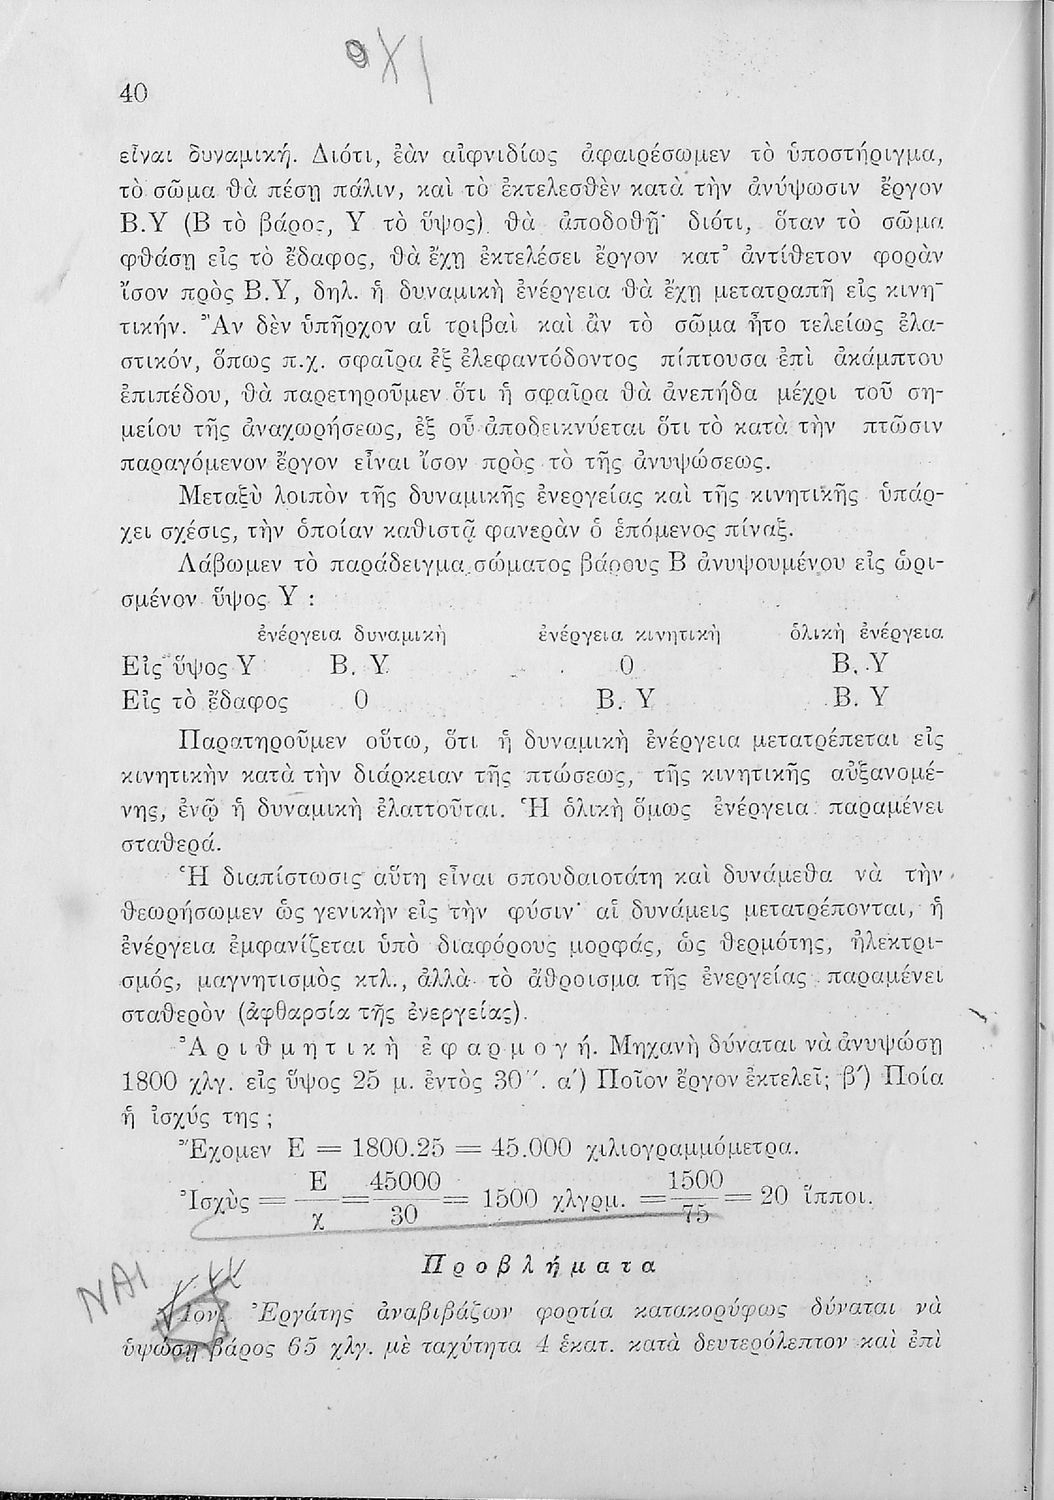 ΟΧΙ
40
εἶναι δυναμική. Διότι, ἐὰν αἰφνιδίως ἀφαιρέσωμεν τὸ ὑποστήριγμα,
τὸ σῶμα θὰ πέσῃ πάλιν, καὶ τὸ ἐκτελεσθὲν κατὰ τὴν ἀνύψωσιν ἔργον
Β.Υ (Β τὸ βάρος, Υ τὸ ὕψος) θὰ ἀποδοθῇ· διότι, ὅταν τὸ σῶμα
φθάσῃ εἰς τὸ ἔδαφος, θὰ ἔχῃ ἐκτελέσει ἔργον κατ᾿ ἀντίθετον φορὰν
ἴσον πρὸς Β.Υ, δηλ. ἡ δυναμικὴ ἐνέργεια θὰ ἔχῃ μετατραπῆ εἰς κινη-
τικήν. Ἂν δὲν ὑπῆρχον αἱ τριβαὶ καὶ ἂν τὸ σῶμα ἦτο τελείως ἐλα-
στικόν, ὅπως π.χ. σφαῖρα ἐξ ἐλεφαντόδοντος πίπτουσα ἐπὶ ἀκάμπτου
ἐπιπέδου, θὰ παρετηροῦμεν ὅτι ἡ σφαῖρα θὰ ἀνεπήδα μέχρι τοῦ ση-
μείου τῆς ἀναχωρήσεως, ἐξ οὗ ἀποδεικνύεται ὅτι τὸ κατὰ τὴν πτῶσιν
παραγόμενον ἔργον εἶναι ἴσον πρὸς τὸ τῆς ἀνυψώσεως.
Μεταξὺ λοιπὸν τῆς δυναμικῆς ἐνεργείας καὶ τῆς κινητικῆς ὑπάρ-
χει σχέσις, τὴν ὁποίαν καθιστᾷ φανερὰν ὁ ἑπόμενος πίναξ.
Λάβωμεν τὸ παράδειγμα σώματος βάρους Β ἀνυψουμένου εἰς ὡρι-
σμένον ὕψος Υ :
ἐνέργεια δυναμικὴ ἐνέργεια κινητικὴ ὁλικὴ ἐνέργεια
Εἰς ὕψος Υ Β. Υ 0 Β. Υ
Εἰς τὸ ἔδαφος 0 Β. Υ Β. Υ
Παρατηροῦμεν οὕτω, ὅτι ἡ δυναμικὴ ἐνέργεια μετατρέπεται εἰς
κινητικὴν κατὰ τὴν διάρκειαν τῆς πτώσεως, τῆς κινητικῆς αὐξανομέ-
νης, ἐνῷ ἡ δυναμικὴ ἐλαττοῦται. Ἡ ὁλικὴ ὅμως ἐνέργεια παραμένει
σταθερά.
Ἡ διαπίστωσις αὕτη εἶναι σπουδαιοτάτη καὶ δυνάμεθα νὰ τὴν
θεωρήσωμεν ὡς γενικὴν εἰς τὴν φύσιν· αἱ δυνάμεις μετατρέπονται, ἡ
ἐνέργεια ἐμφανίζεται ὑπὸ διαφόρους μορφάς, ὡς θερμότης, ἠλεκτρι-
σμός, μαγνητισμὸς κτλ., ἀλλὰ τὸ ἄθροισμα τῆς ἐνεργείας παραμένει
σταθερὸν (ἀφθαρσία τῆς ἐνεργείας).
Ἀριθμητικὴ ἐφαρμογή. Μηχανὴ δύναται νὰ ἀνυψώσῃ
1800 χλγ. εἰς ὕψος 25 μ. ἐντὸς 30΄΄. α΄) Ποῖον ἔργον ἐκτελεῖ; β΄) Ποία
ἡ ἰσχύς της ;
Ἔχομεν Ε = 1800.25 = 45.000 χιλιογραμμόμετρα.
Ἰσχὺς = Ε/χ = 45000/30 = 1500 χλγρμ. = 1500/75 = 20 ἵπποι.
Προβλήματα
ΝΑΙ
1ον. Ἐργάτης ἀναβιβάζων φορτία κατακορύφως δύναται νὰ
ὑψώσῃ βάρος 65 χλγ. μὲ ταχύτητα 4 ἑκατ. κατὰ δευτερόλεπτον καὶ ἐπὶ